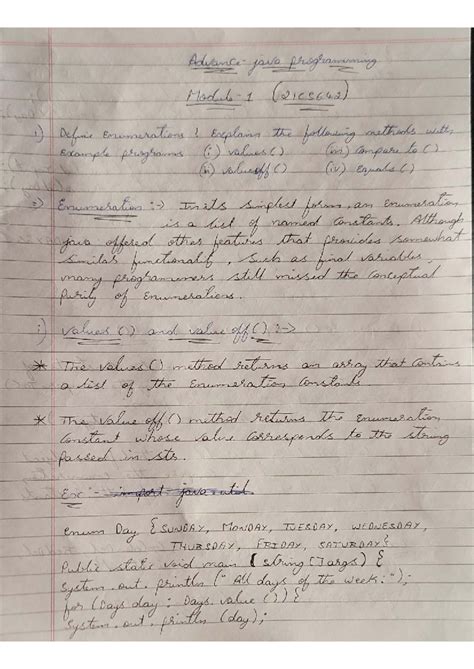 Advance - java programming
Module - 1 (21CS642)
1) Define Enumerations! Explain the following methods with
Example programs (i) values() (iii) Compare to ()
(ii) valueoff() (iv) Equals()
2) Enumeration :-> In its simplest form, an Enumeration
is a list of named Constants. Although
java offered other features that provides somewhat
similar functionality, such as final variables,
many programmers still missed the conceptual
Purity of Enumerations.
i) values () and value off() :->
* The values() method returns an array that Contains
a list of the Enumeration Constants.
* The value off() method returns the enumeration
Constant whose value Corresponds to the string
passed in str.
Ex :- import java.util.
enum Day { SUNDAY, MONDAY, TUESDAY, WEDNESDAY,
THURSDAY, FRIDAY, SATURDAY}
Public static void main (string[] args) {
System.out.println ("All days of the week:");
for (Days day : Days.value ()) {
System.out.println (day);